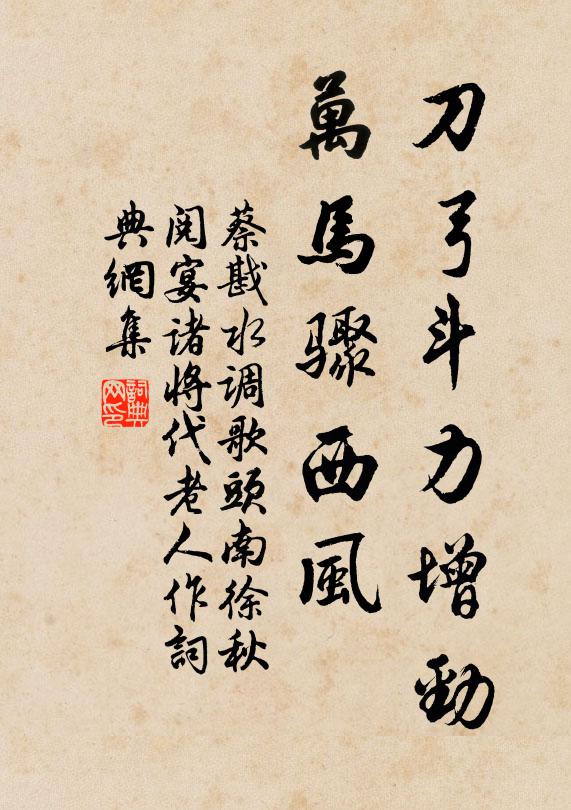 刀弓斗力增勁
萬馬驟西風
蔡戡水调歌頭南徐秋
阅宴诸將代老人作詞
典網集
詞典網印